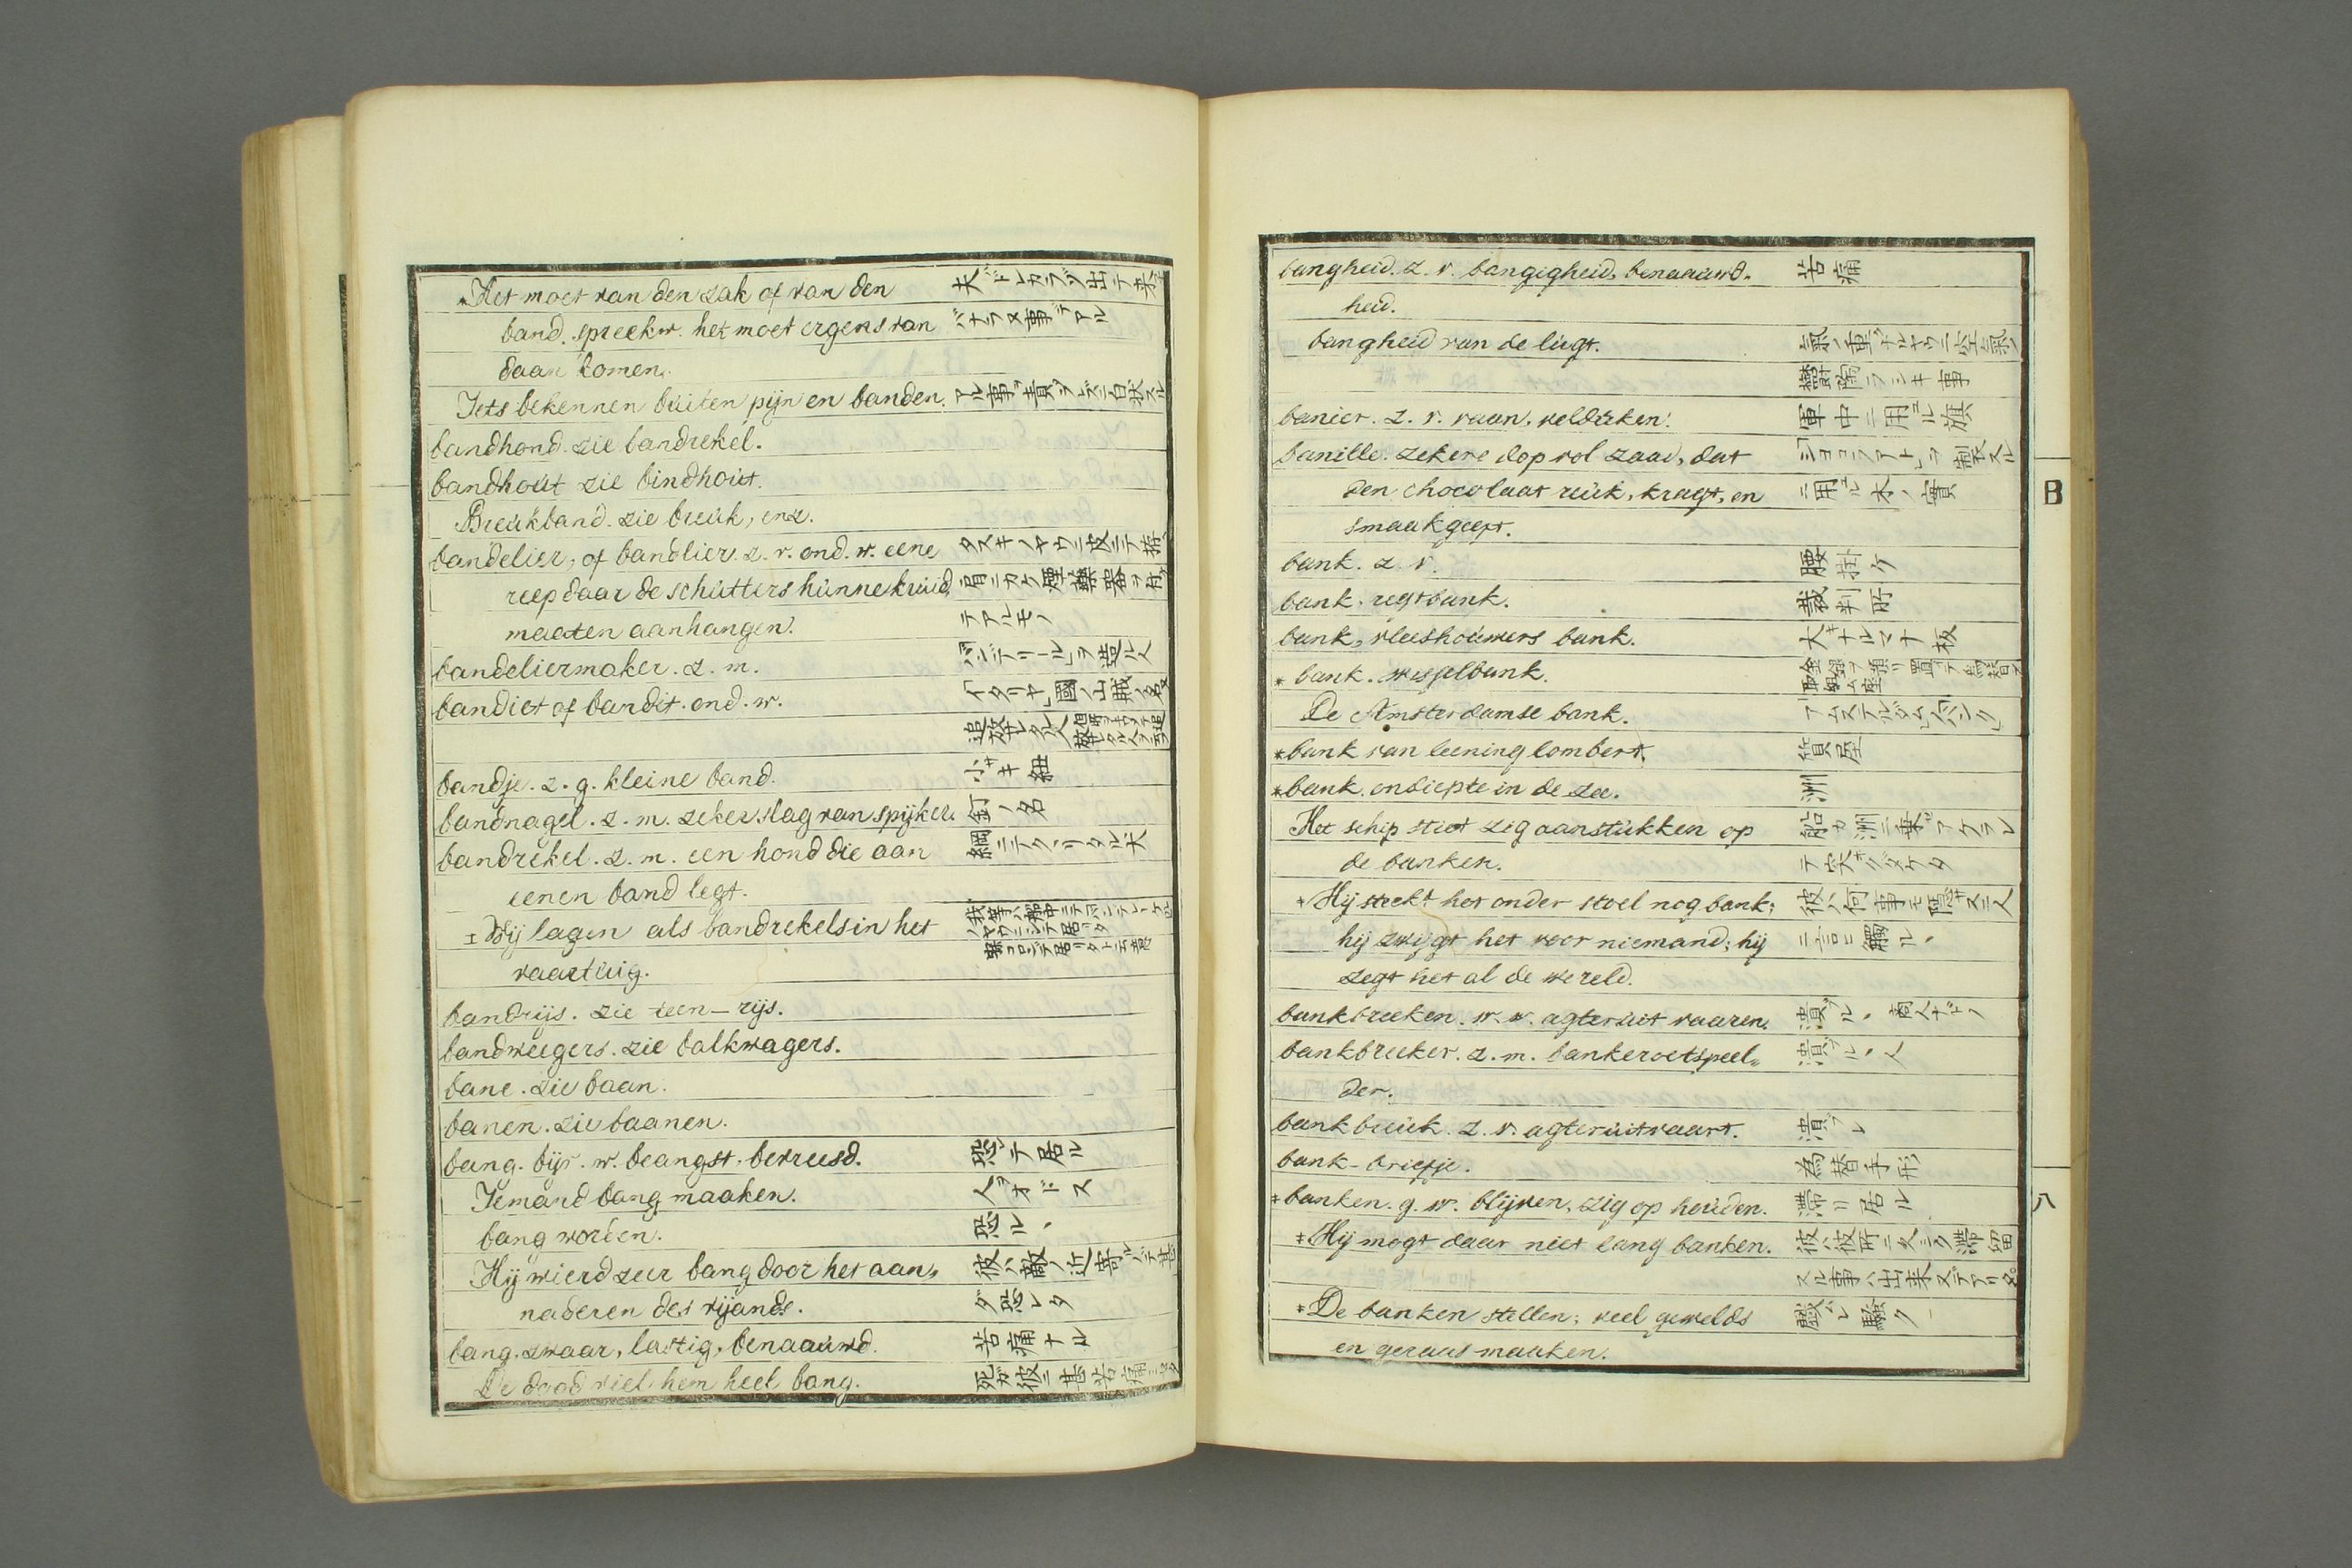 *Het moet van den zak of van den
band. spreekw. het moet ergens van
daan komen.
Iets bekennen buiten pijn en banden.
bandhond. zie bandrekel.
bandhoút zie bindhoút.
Breúkband. zie breúk, enz.
bandelier, of bandlier. z. v. ond. w. eene
reep daar de schútters húnne krúid,
maaten aanhangen.
bandeliermaker. z. m.
bandiet of bandit. ond. w.
bandje. z. g. kleine band. 小サキ紐
bandnagel. z. m. zeker slag van spijker. 釘ノ名
bandrekel. z. m. een hond die aan
eenen band legt.
‡ Wij lagen als bandrekels in het
vaartúig.
bandrijs. zie teen-rijs.
bandweegers. zie balkwagers.
bane. zie baan.
banen. zie baanen.
bang. bijv. w. beangst. bevreesd. 恐テ居ル
Iemand bang maaken. 人ヲオドス
bang worden. 恐ル、
Hij wierd zeer bang door het aan,
naderen des vijands. ダ恐レタ
bang. zwaar, lastig, benaaúwd. 苦痛ナル
De dood viel hem heel bang.
bangheid. z. v. bangigheid, benaauwd. 苦痛
heid.
bangheid van de lúgt.
鬱陶ラシキ事
banier. z. v. vaan, veldteken. 軍中ニ用ル旗
banille. zekere dop vol zaad, dat
den chocolaat reúk, kragt, en ニ用ル木ノ實
smaak geeft.
bank. z. v. 腰掛ケ
bank. regtbank. 裁判所
bank, vleeshoúwers bank. 大キナルマナ板
* bank. wisselbank.
De Amsterdamse bank.
*bank van leening lombert. 質屋
*bank. ondiepte in de zee. 洲
Het schip stiet zig aan stúkken op 船カ洲ニ乗アケラレ
de banken.
‡ Hij steekt het onder stoel nog bank; 彼ハ何事モ隠サズニ人
hij zwijgt het voor niemand; hij ニ言ヒ觸ル、
zegt het al de wereld.
bankbreeken. w. w. agterúit vaaren. 潰ブル、商人ナドノ
bankbreeker. z. m. bankeroetspeel„ 潰ブル、人
der.
bankbreúk. z. v. agterúitvaart. 潰ブレ
bank-briefje. 為替手形
‡banken. g. w. blijven, zig op hoúden. 滞リ居ル
‡Hij mogt daar niet lang banken. 彼ハ彼所ニ久シク滞留
スル事ハ出来ズデアリタ
‡De banken stellen; veel gewelds 戯レ騒ク
en geraas maaken.
B
八